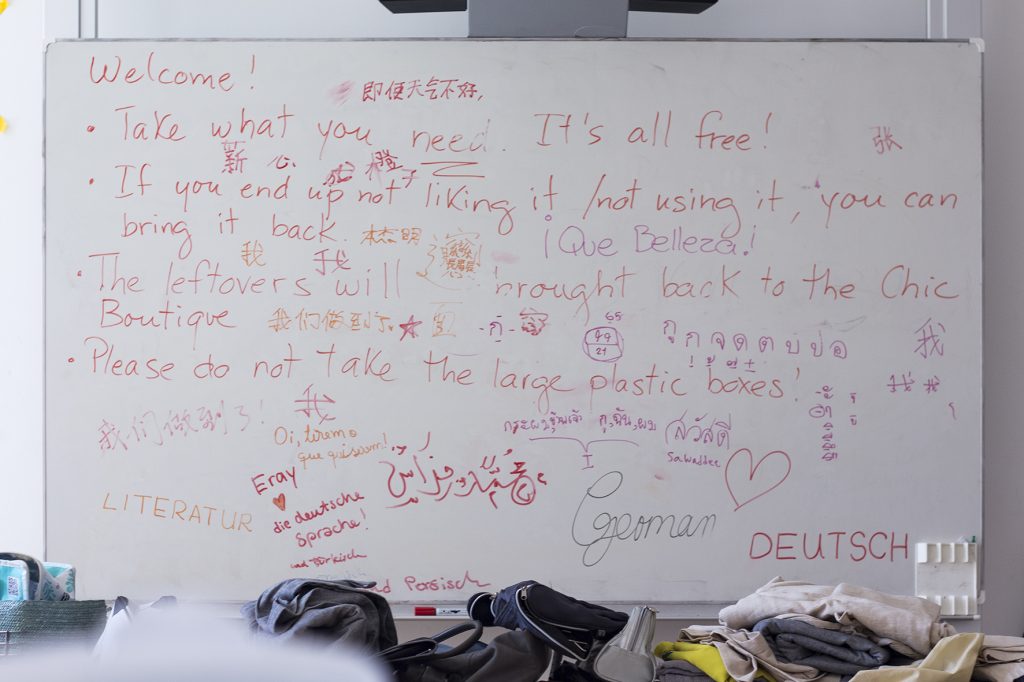 Welcome!
即使天气不好,
• Take what you need. It's all free!
张
薪 心 橙子
• If you end up not liking it /not using it, you can
bring it back.
¡Que Belleza!
我 我
• The leftovers will brought back to the Chic
Boutique
我们做到了
65
99
21
กู ก จ ด ต บ ป อ
我
• Please do not take the large plastic boxes!
我
我们做到了!
Oi, teremo
que quiseum!
กู, ฉัน, ผม
I
สวัสดี
Sawaddee
Eray
die deutsche
Sprache!
und türkisch
nd Persisch
LITERATUR
German
DEUTSCH